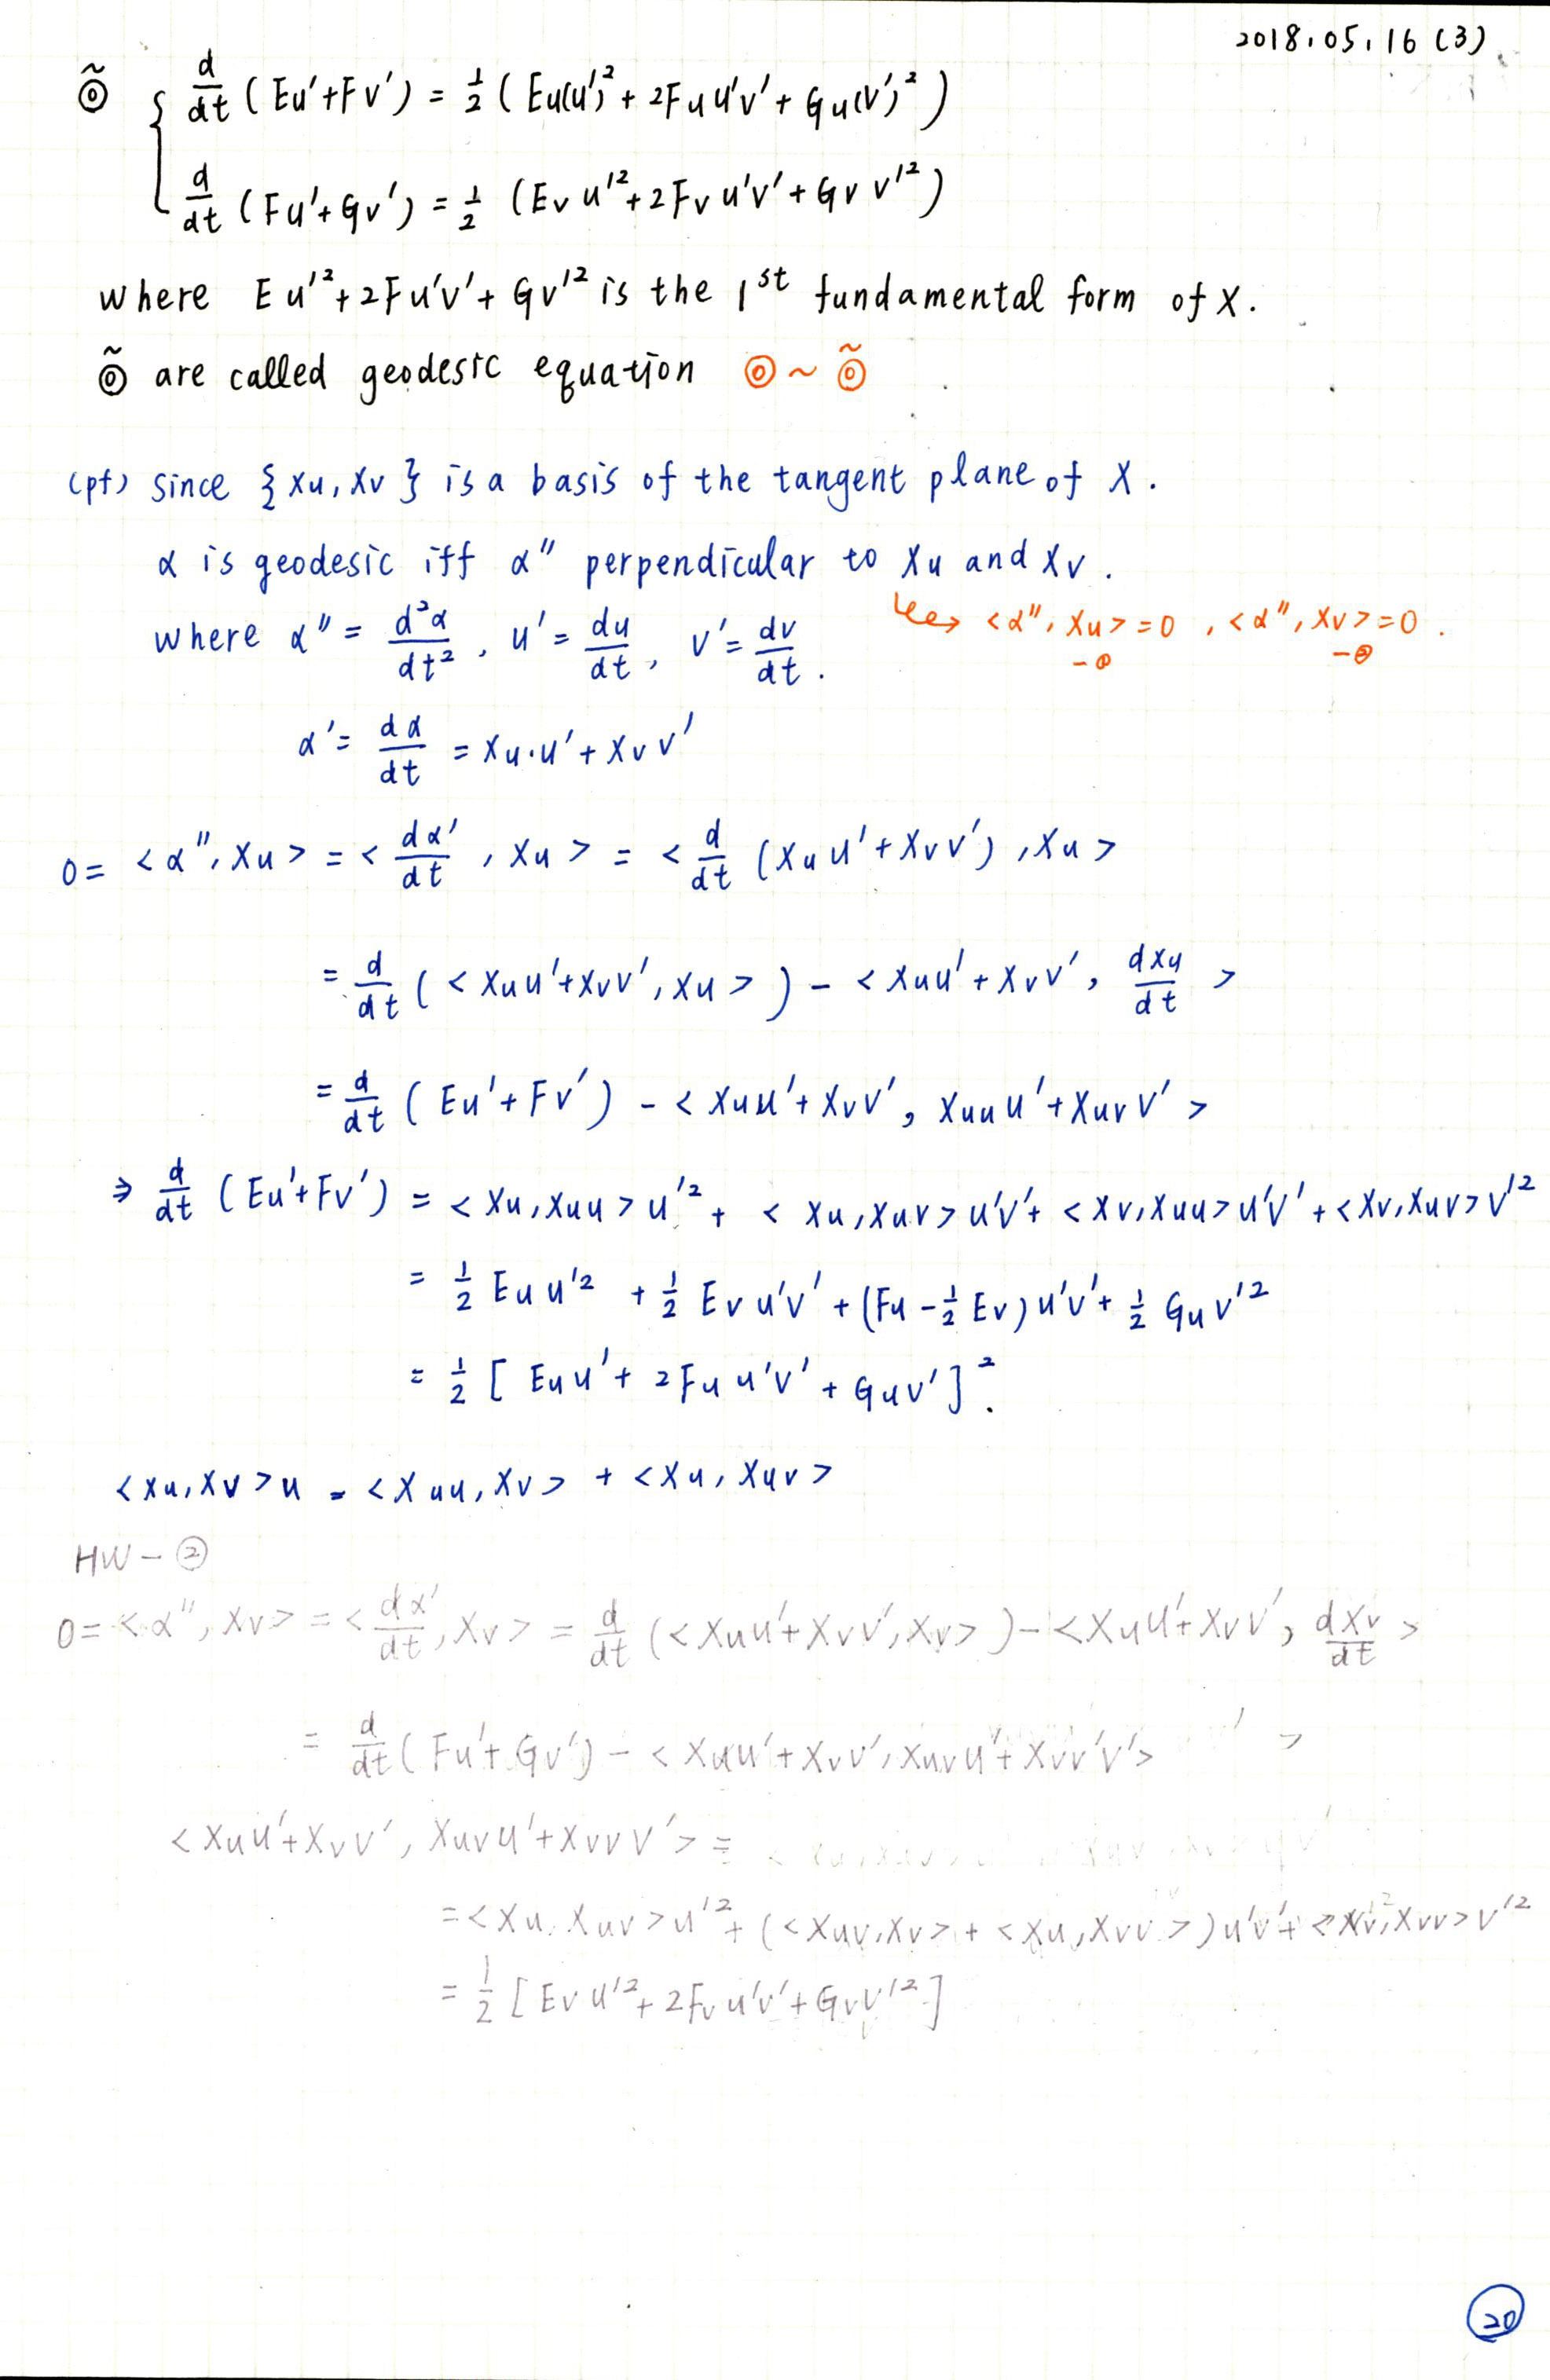 2018.05.16 (3)
◎̃ { d/dt (Eu'+Fv') = 1/2 (Eu(u')² + 2Fu u'v' + Gu(v')²)
d/dt (Fu'+Gv') = 1/2 (Ev u'² + 2Fv u'v' + Gv v'²)
where Eu'² + 2Fu'v' + Gv'² is the 1st fundamental form of X.
◎̃ are called geodesic equation ◎ ~ ◎̃
(pf) Since {Xu, Xv} is a basis of the tangent plane of X.
α is geodesic iff α'' perpendicular to Xu and Xv.
where α'' = d²α/dt², u' = du/dt, v' = dv/dt. <α'', Xu> = 0, <α'', Xv> = 0.
-① -②
α' = dα/dt = Xu·u' + Xv v'
0 = <α'', Xu> = <dα'/dt, Xu> = <d/dt (Xu u' + Xv v'), Xu>
= d/dt (<Xu u' + Xv v', Xu>) - <Xu u' + Xv v', dXu/dt>
= d/dt (Eu' + Fv') - <Xu u' + Xv v', Xuu u' + Xuv v'>
⇒ d/dt (Eu' + Fv') = <Xu, Xuu> u'² + <Xu, Xuv> u'v' + <Xv, Xuu> u'v' + <Xv, Xuv> v'²
= 1/2 Eu u'² + 1/2 Ev u'v' + (Fu - 1/2 Ev) u'v' + 1/2 Gu v'²
= 1/2 [Eu u' + 2Fu u'v' + Gu v']².
<Xu, Xv>u = <Xuu, Xv> + <Xu, Xuv>
HW - ②
0 = <α'', Xv> = <dα'/dt, Xv> = d/dt (<Xu u' + Xv v', Xv>) - <Xu u' + Xv v', dXv/dt>
= d/dt (Fu' + Gv') - <Xu u' + Xv v', Xuv u' + Xvv v'>
<Xu u' + Xv v', Xuv u' + Xvv v'> =
= <Xu, Xuv> u'² + (<Xuv, Xv> + <Xu, Xvv>) u'v' + <Xv, Xvv> v'²
= 1/2 [Ev u'² + 2Fv u'v' + Gv v'²]
20